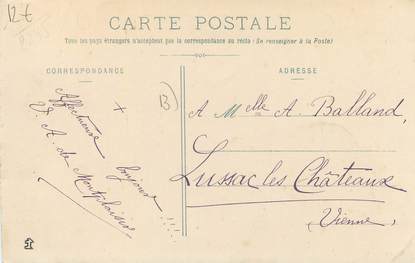 12€
CARTE POSTALE
Tous les pays étrangers n'acceptent pas la correspondance au recto (Se renseigner à la Poste)
CORRESPONDANCE
Affectueux bonjour
J. A. de Montplaisir
ADRESSE
B
A Melle A. Balland,
Lussac les Châteaux
Vienne